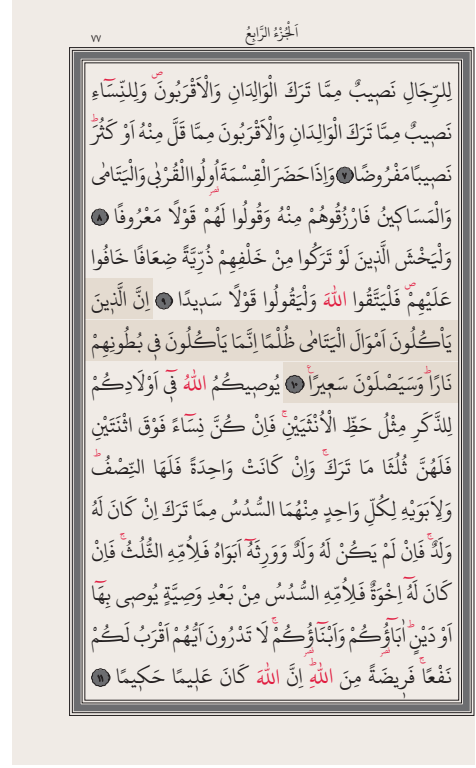 اَلْجُزْءُ الرَّابِعُ
٧٧
لِلرِّجَالِ نَصٖيبٌ مِمَّا تَرَكَ الْوَالِدَانِ وَالْاَقْرَبُونَۖ وَلِلنِّسَٓاءِ
نَصٖيبٌ مِمَّا تَرَكَ الْوَالِدَانِ وَالْاَقْرَبُونَ مِمَّا قَلَّ مِنْهُ اَوْ كَثُرَؕ
نَصٖيبًا مَفْرُوضًا ﴿٧﴾ وَاِذَا حَضَرَ الْقِسْمَةَ اُو۬لُوا الْقُرْبٰى وَالْيَتَامٰى
وَالْمَسَاكٖينُ فَارْزُقُوهُمْ مِنْهُ وَقُولُوا لَهُمْ قَوْلًا مَعْرُوفًا ﴿٨﴾
وَلْيَخْشَ الَّذٖينَ لَوْ تَرَكُوا مِنْ خَلْفِهِمْ ذُرِّيَّةً ضِعَافًا خَافُوا
عَلَيْهِمْۖ فَلْيَتَّقُوا اللّٰهَ وَلْيَقُولُوا قَوْلًا سَدٖيدًا ﴿٩﴾ اِنَّ الَّذٖينَ
يَأْكُلُونَ اَمْوَالَ الْيَتَامٰى ظُلْمًا اِنَّمَا يَأْكُلُونَ فٖى بُطُونِهِمْ
نَارًاؕ وَسَيَصْلَوْنَ سَعٖيرًاۚ ﴿١٠﴾ يُوصٖيكُمُ اللّٰهُ فٖٓى اَوْلَادِكُمْ
لِلذَّكَرِ مِثْلُ حَظِّ الْاُنْثَيَيْنِۚ فَاِنْ كُنَّ نِسَٓاءً فَوْقَ اثْنَتَيْنِ
فَلَهُنَّ ثُلُثَا مَا تَرَكَۚ وَاِنْ كَانَتْ وَاحِدَةً فَلَهَا النِّصْفُؕ
وَلِاَبَوَيْهِ لِكُلِّ وَاحِدٍ مِنْهُمَا السُّدُسُ مِمَّا تَرَكَ اِنْ كَانَ لَهُ
وَلَدٌۚ فَاِنْ لَمْ يَكُنْ لَهُ وَلَدٌ وَوَرِثَهُٓ اَبَوَاهُ فَلِاُمِّهِ الثُّلُثُۚ فَاِنْ
كَانَ لَهُٓ اِخْوَةٌ فَلِاُمِّهِ السُّدُسُ مِنْ بَعْدِ وَصِيَّةٍ يُوصٖى بِهَٓا
اَوْ دَيْنٍؕ اٰبَٓاؤُ۬كُمْ وَاَبْنَٓاؤُ۬كُمْۚ لَا تَدْرُونَ اَيُّهُمْ اَقْرَبُ لَكُمْ
نَفْعًاۚ فَرٖيضَةً مِنَ اللّٰهِؕ اِنَّ اللّٰهَ كَانَ عَلٖيمًا حَكٖيمًا ﴿١١﴾